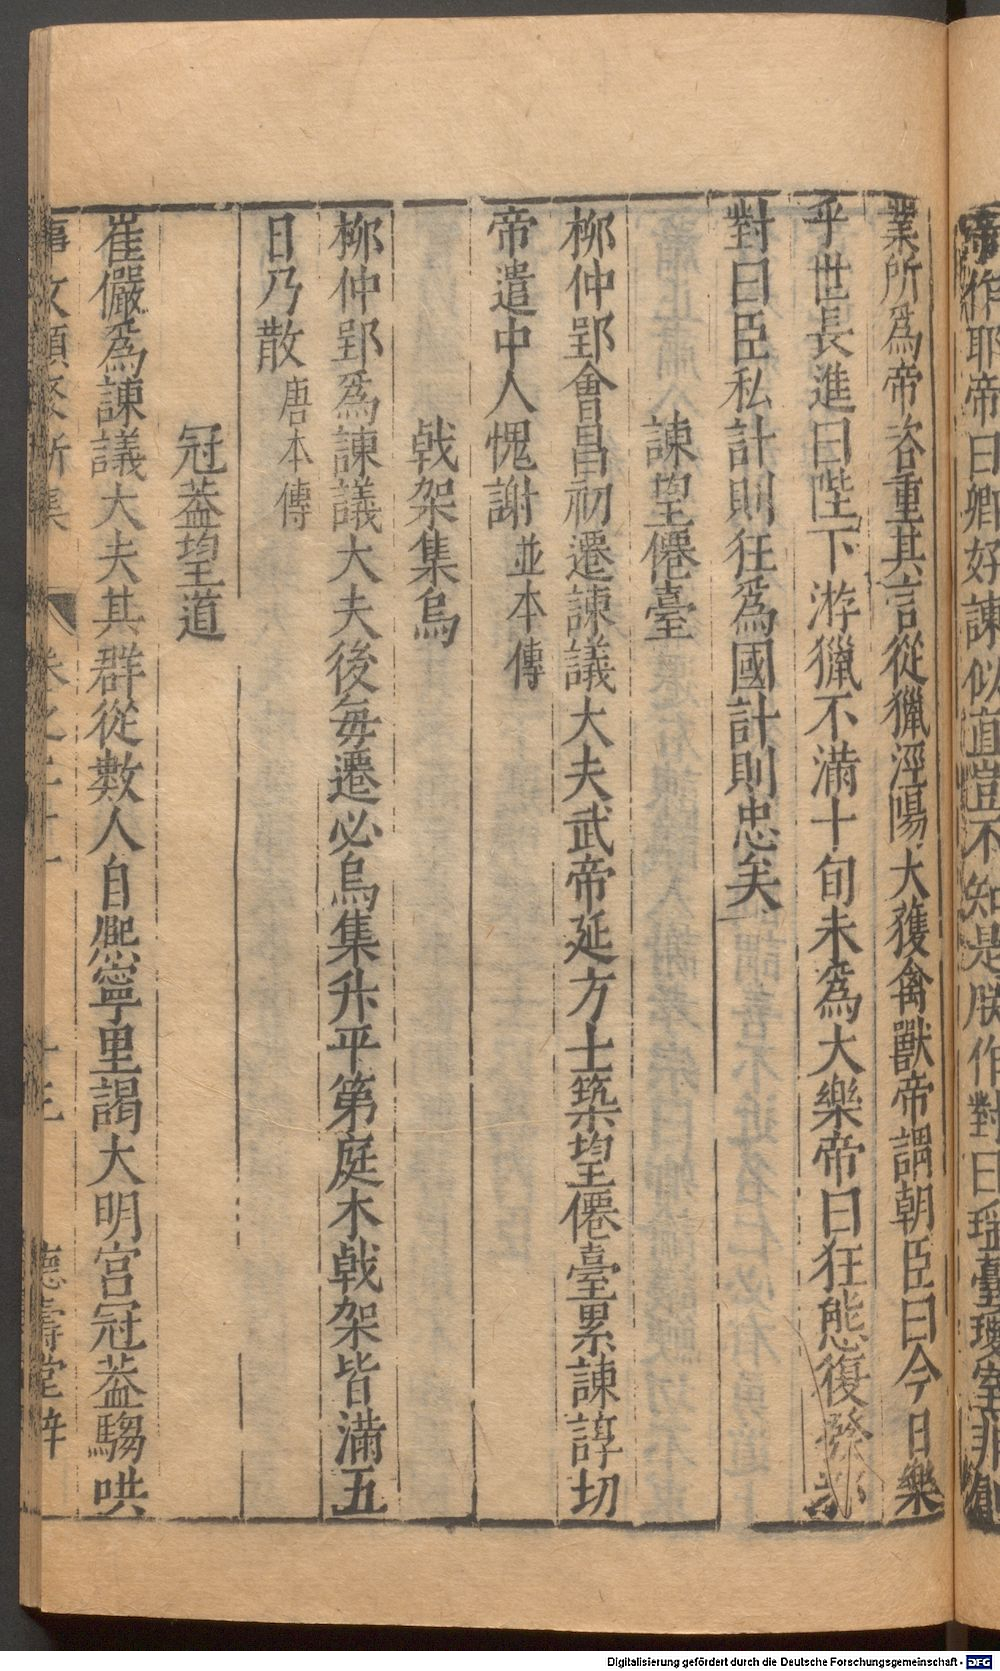 帝作耶帝曰卿好諫似直豈不知是朕作對曰瑶臺瓊室非創
業所爲帝咨重其言從獵涇陽大獲禽獸帝謂朝臣曰今日樂
乎世長進曰陛下游獵不滿十旬未爲大樂帝曰狂態復發邪
對曰臣私計則狂爲國計則忠矣
諫望僊臺
柳仲郢會昌初遷諫議大夫武帝延方士築望僊臺累諫諄切
帝遣中人愧謝並本傳
戟架集烏
柳仲郢爲諫議大夫後每遷必烏集升平第庭木戟架皆滿五
日乃散唐本傳
冠葢望道
崔儼爲諫議大夫其群從數人自熈寧里謁大明宮冠葢騶哄
事文類聚新集 卷之二十一 十七 德壽堂梓
Digitalisierung gefördert durch die Deutsche Forschungsgemeinschaft - DFG